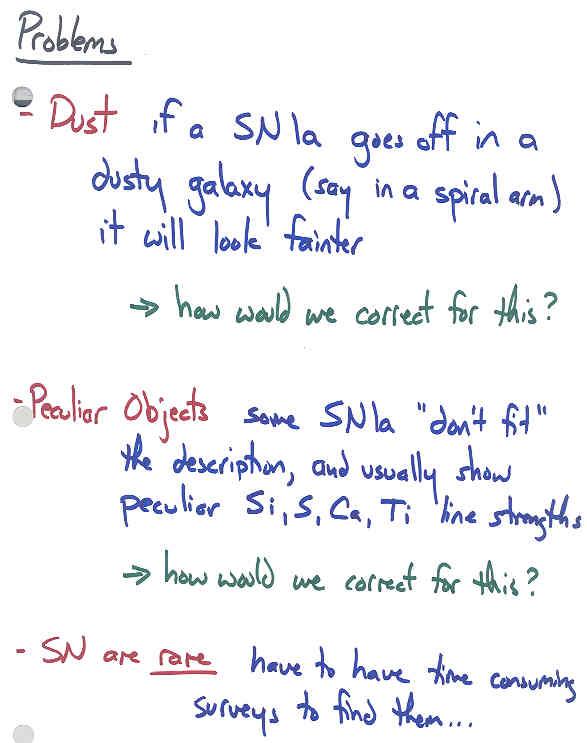 Problems
- Dust if a SN Ia goes off in a
dusty galaxy (say in a spiral arm)
it will look fainter
→ how would we correct for this?
- Peculiar Objects some SN Ia "don't fit"
the description, and usually show
peculiar Si, S, Ca, Ti line strengths
→ how would we correct for this?
- SN are rare have to have time consuming
surveys to find them...